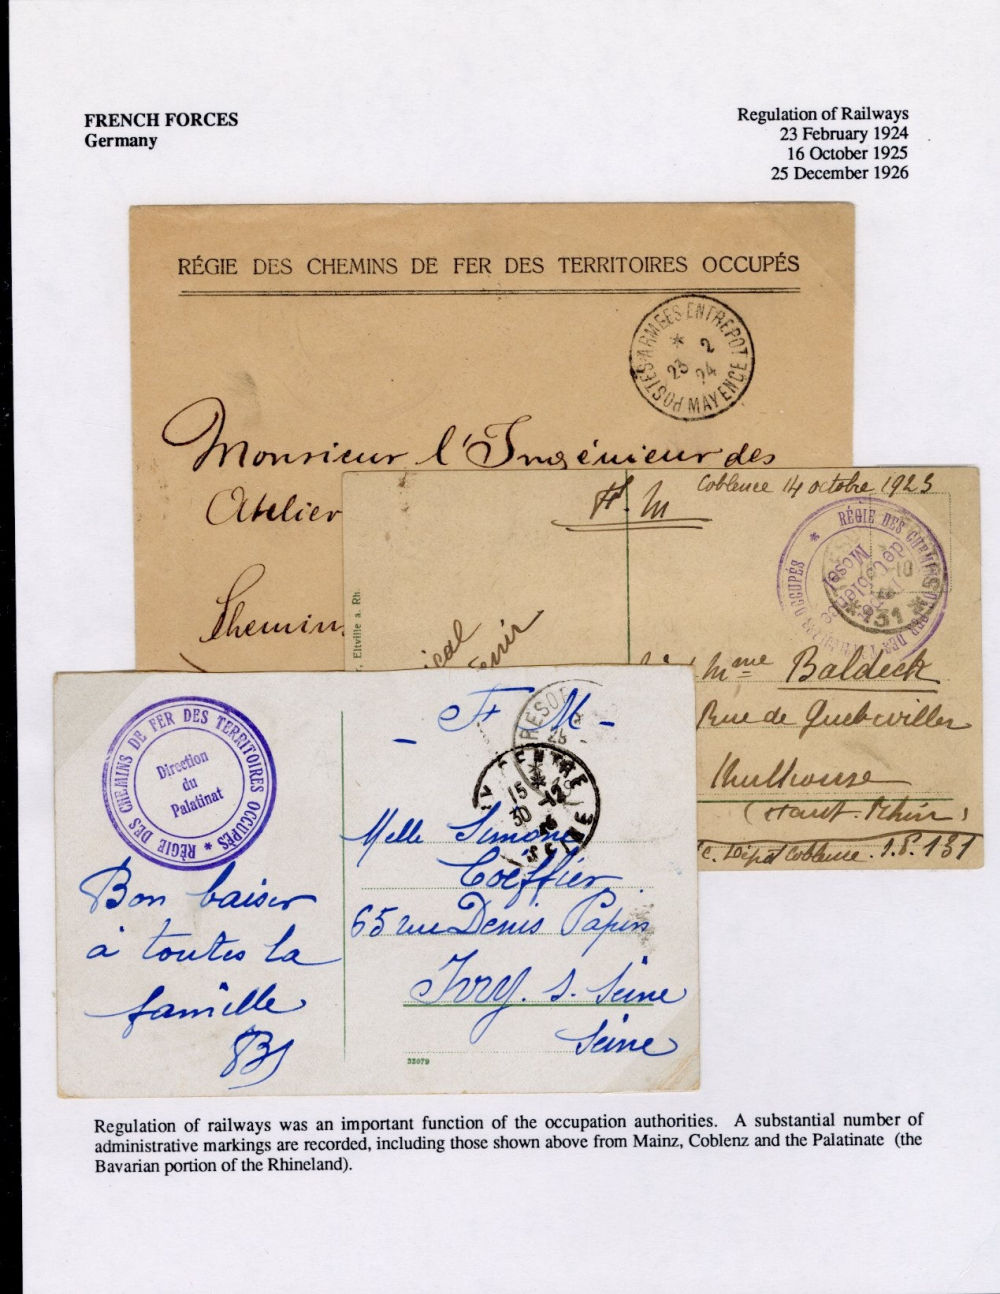 FRENCH FORCES
Germany
Regulation of Railways
23 February 1924
16 October 1925
25 December 1926
RÉGIE DES CHEMINS DE FER DES TERRITOIRES OCCUPÉS
POSTES ARMEES ENTREPOT MAYENCE
* 2
23 24
Monsieur l'Ingénieur des
Atelier
Chemin
F. M
Coblence 14 octobre 1925
RÉGIE DES CHEMINS DE FER DES TERRITOIRES OCCUPÉS *
Mosel
*131*
, Eltville a. Rh.
Mme Baldeck
Rue de
Mulhouse
(Haut-Rhin)
Dépôt Coblence. S.P. 131
RÉGIE DES CHEMINS DE FER DES TERRITOIRES OCCUPÉS *
Direction
du
Palatinat
- F M -
TRESOR
CENTRE
15
30 -12
26
SEINE
Melle Simone
Coeffier
65 rue Denis Papin
Ivry. s. Seine
Seine
Bon baiser
à toutes la
famille
33079
Regulation of railways was an important function of the occupation authorities. A substantial number of
administrative markings are recorded, including those shown above from Mainz, Coblenz and the Palatinate (the
Bavarian portion of the Rhineland).